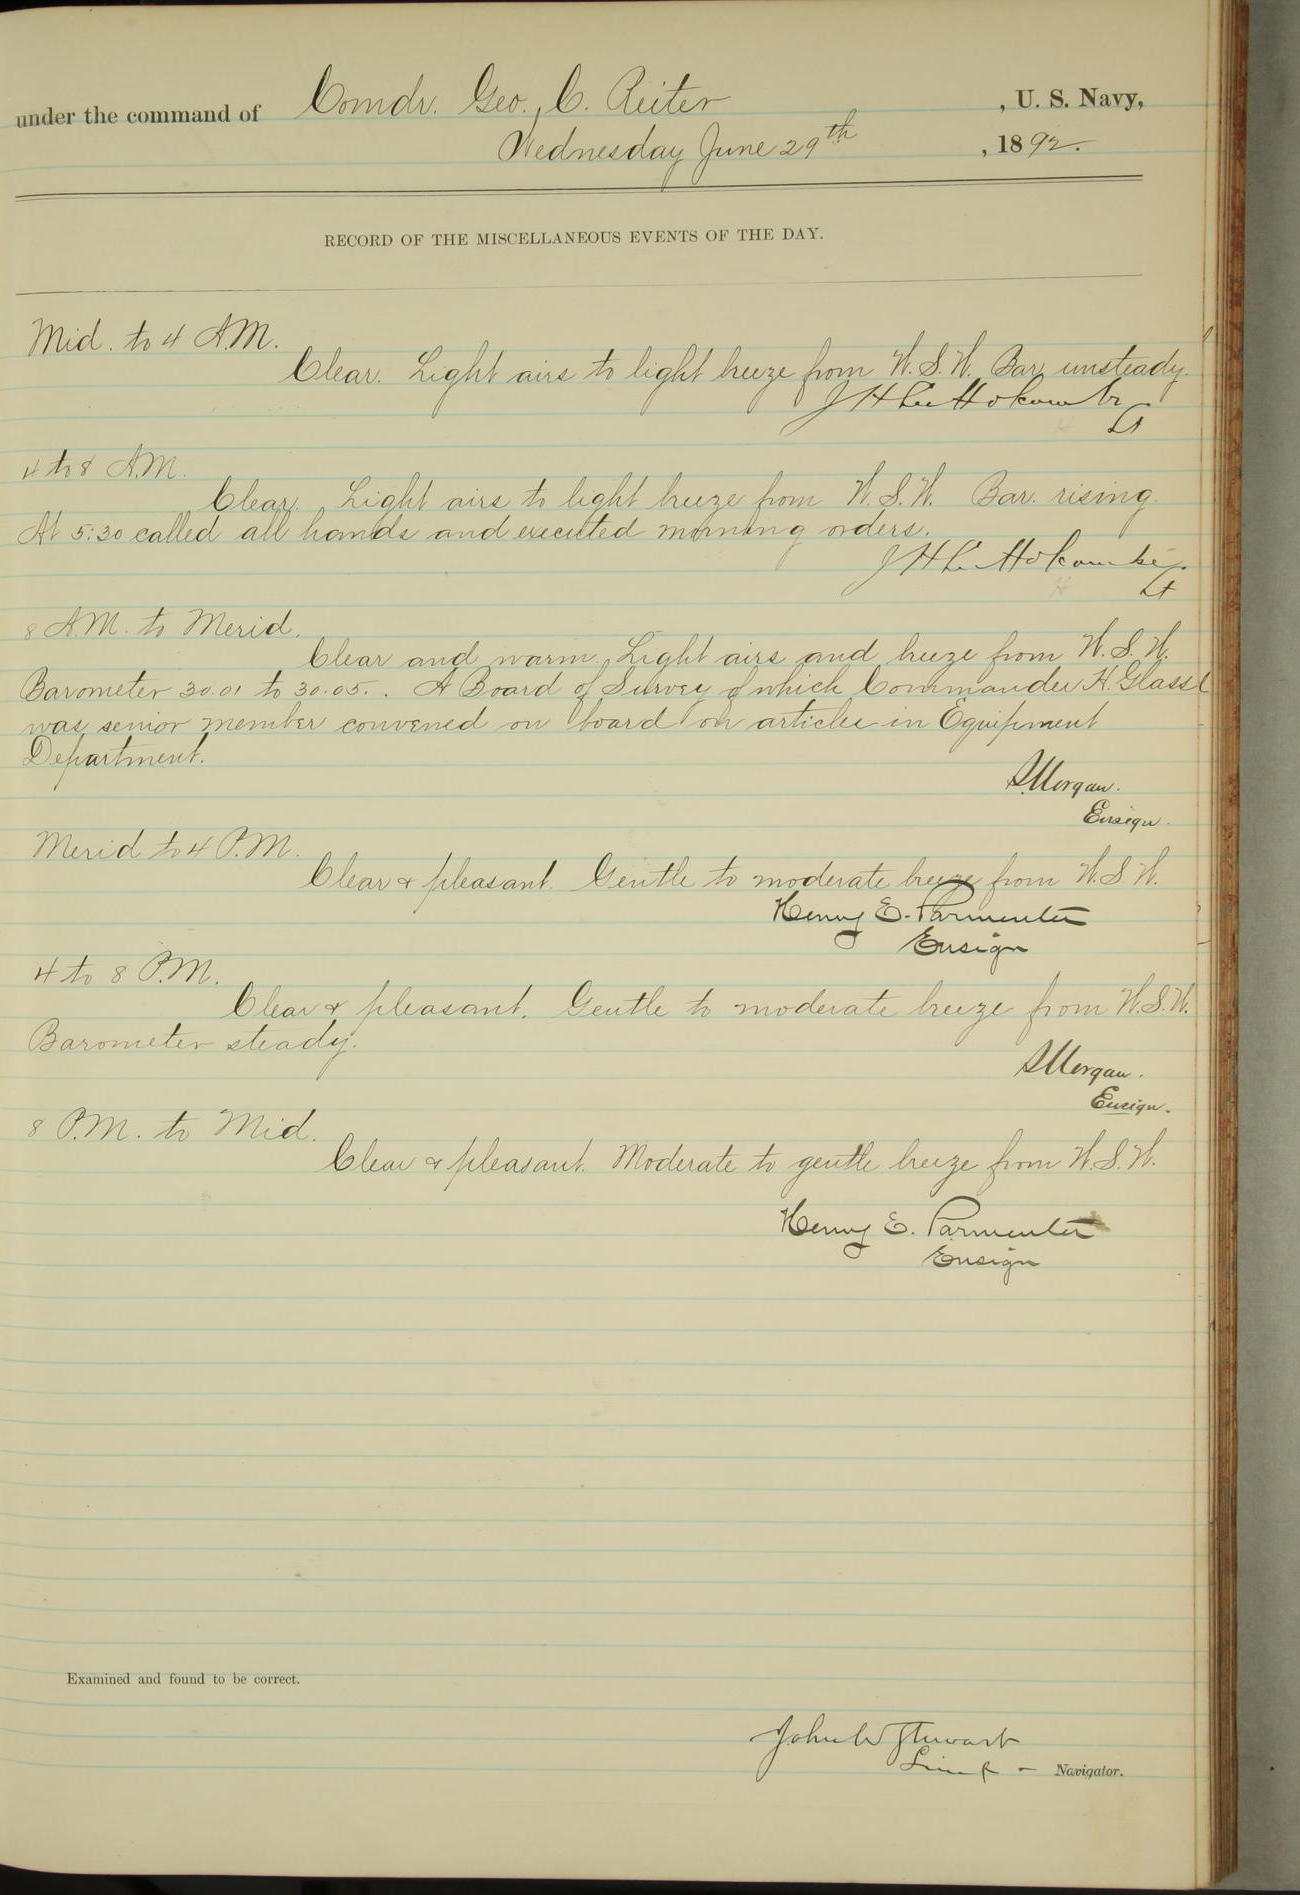 under the command of Comdr. Geo. C. Reiter , U. S. Navy,
Wednesday June 29th , 1892.
RECORD OF THE MISCELLANEOUS EVENTS OF THE DAY.
Mid. to 4 A.M.
Clear. Light airs to light breeze from W.S.W. Bar. unsteady.
J H L Holcombe
Lt
4 to 8 A.M.
Clear. Light airs to light breeze from W.S.W. Bar. rising.
At 5:30 called all hands and executed morning orders.
J H L Holcombe
Lt
8 A.M. to Merid.
Clear and warm. Light airs and breeze from W.S.W.
Barometer 30.01 to 30.05. . A Board of Survey of which Commander H. Glass
was senior member convened on board on articles in Equipment
Department.
Morgan.
Ensign.
Merid to 4 P.M.
Clear & pleasant. Gentle to moderate breeze from W.S.W.
Henry E. Parmenter
Ensign
4 to 8 P.M.
Clear & pleasant. Gentle to moderate breeze from W.S.W.
Barometer steady.
Morgan.
Ensign.
8 P.M. to Mid.
Clear & pleasant. Moderate to gentle breeze from W.S.W.
Henry E. Parmenter
Ensign
Examined and found to be correct.
John W Stewart
Navigator.